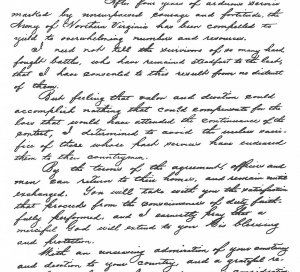 After four years of arduous service
marked by unsurpassed courage and fortitude, the
Army of Northern Virginia has been compelled to
yield to overwhelming numbers and resources.
I need not tell the survivors of so many hard
fought battles, who have remained steadfast to the last,
that I have consented to this result from no distrust
of them.
But feeling that valor and devotion could
accomplish nothing that could compensate for the
loss that would have attended the continuance of the
contest, I determined to avoid the useless sacri-
fice of those whose past services have endeared
them to their countrymen.
By the terms of the agreement, officers and
men can return to their homes, and remain until
exchanged. You will take with you the satisfaction
that proceeds from the consciousness of duty faith-
fully performed, and I earnestly pray that a
merciful God will extend to you His blessing
and protection.
With an unceasing admiration of your constancy
and devotion to your country, and a grateful re-